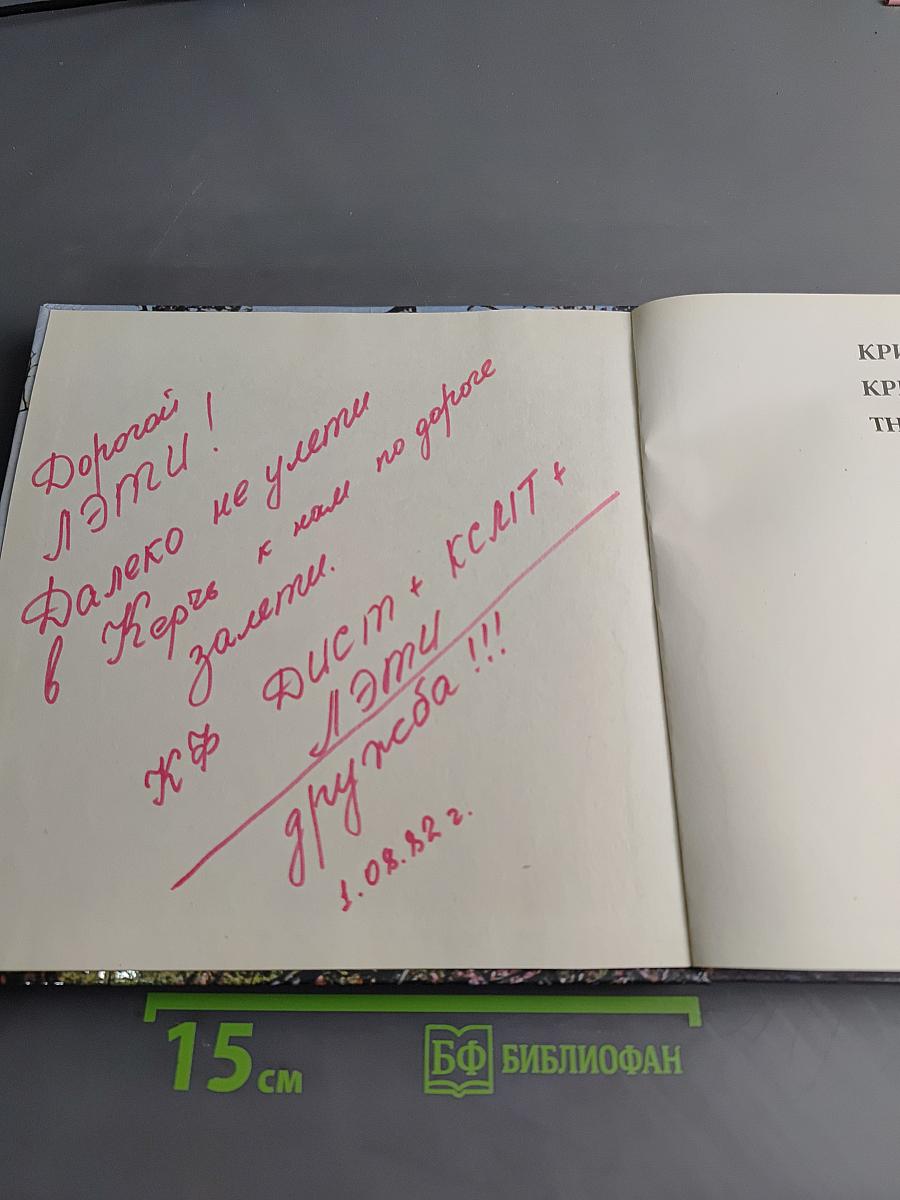 Дорогой
ЛЭТИ!
Далеко не улети
в Керчь к нам по дороге
залети.
КФ ДИСТ + КСМТ +
ЛЭТИ
дружба!!!
1.08.82 г.
КРИ
КРЫ
TH
15 см
БФ БИБЛИОФАН